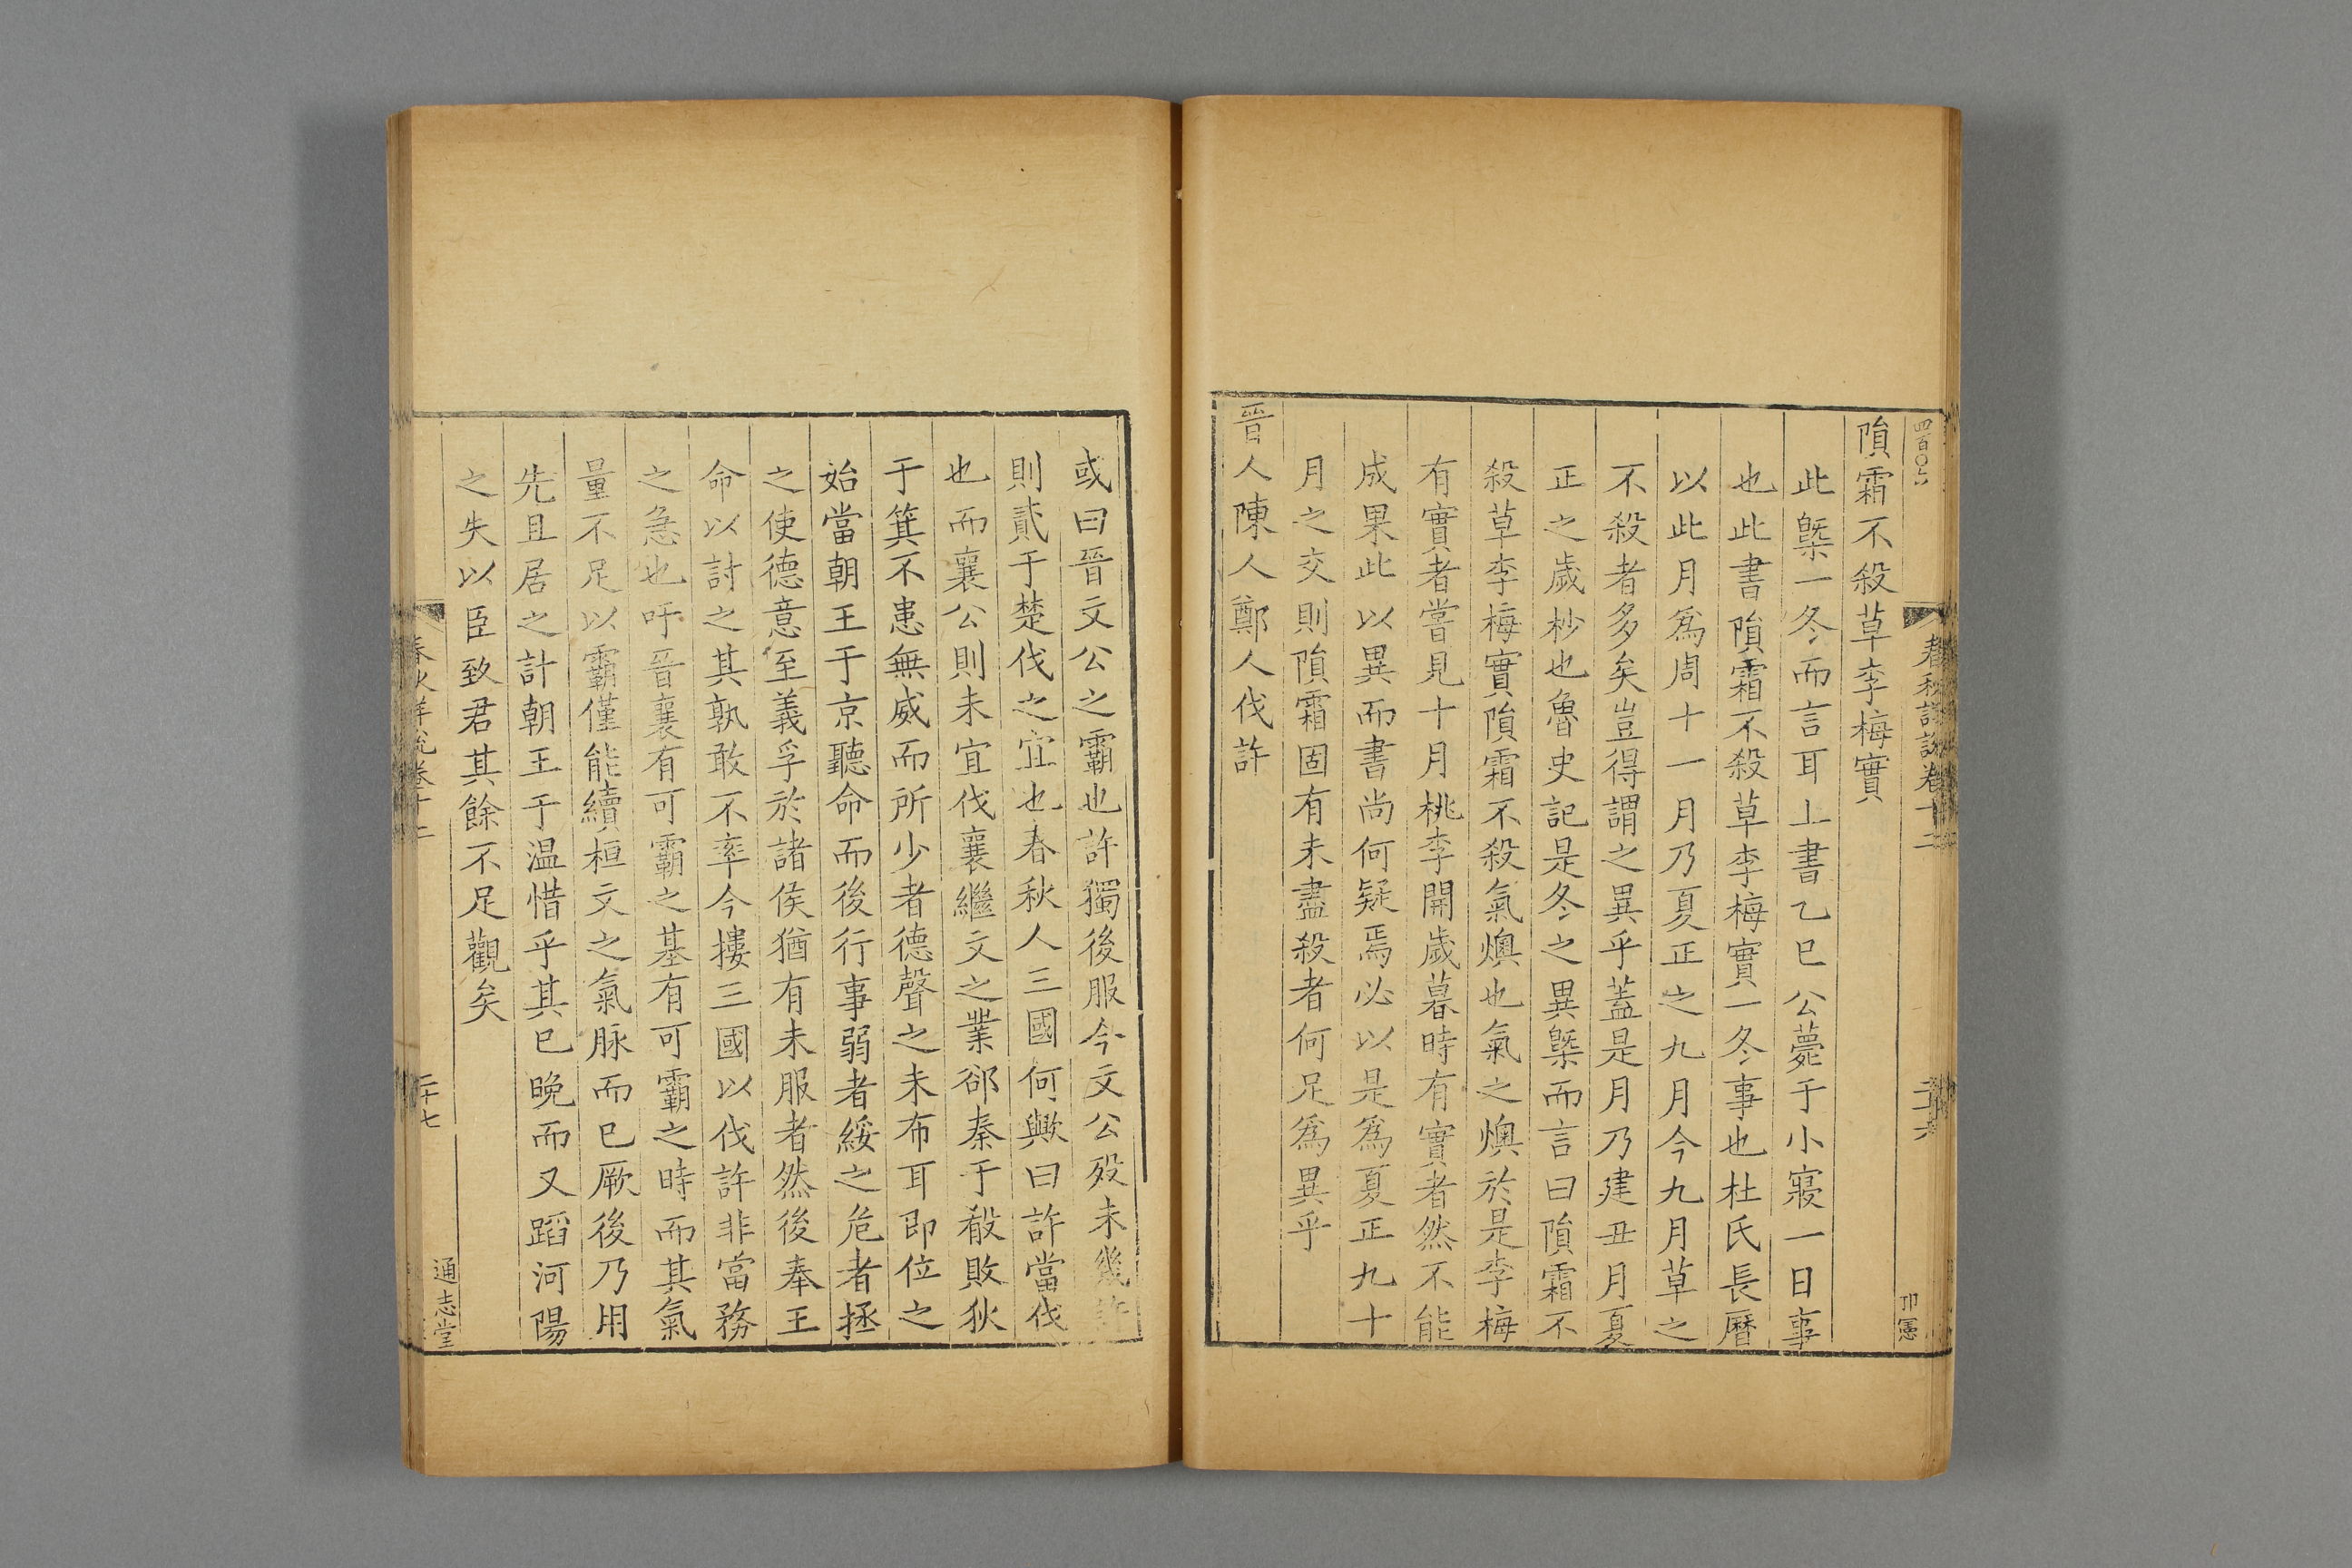 四百〇六
春秋詳說卷十二
二十六
卭憲
隕霜不殺草李梅實
此槩一冬而言耳上書乙巳公薨于小寢一日事
也此書隕霜不殺草李梅實一冬事也杜氏長曆
以此月爲周十一月乃夏正之九月今九月草之
不殺者多矣豈得謂之異乎蓋是月乃建丑月夏
正之歲杪也魯史記是冬之異槩而言曰隕霜不
殺草李梅實隕霜不殺氣燠也氣之燠於是李梅
有實者嘗見十月桃李開歲暮時有實者然不能
成果此以異而書尚何疑焉必以是爲夏正九十
月之交則隕霜固有未盡殺者何足爲異乎
晉人陳人鄭人伐許
或曰晉文公之霸也許獨後服今文公歿未幾許
則貳于楚伐之宜也春秋人三國何歟曰許當伐
也而襄公則未宜伐襄繼文之業郤秦于殽敗狄
于箕不患無威而所少者德聲之未布耳即位之
始當朝王于京聽命而後行事弱者綏之危者拯
之使德意至義孚於諸侯猶有未服者然後奉王
命以討之其孰敢不率今摟三國以伐許非當務
之急也吁晉襄有可霸之基有可霸之時而其氣
量不足以霸僅能續桓文之氣脉而已厥後乃用
先且居之計朝王于温惜乎其已晚而又蹈河陽
之失以臣致君其餘不足觀矣
春秋詳說卷十二
二十七
通志堂